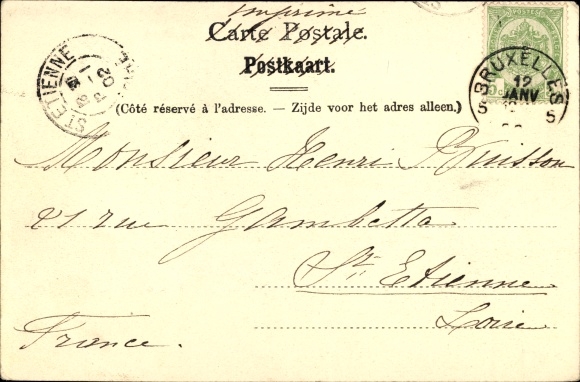 Imprimé
Carte Postale.
Postkaart.
(Côté réservé à l'adresse. — Zijde voor het adres alleen.)
ST ETIENNE
BRUXELLES
12
JANV
5 5
Monsieur Henri Buisson
21 rue Gambetta
St. Etienne
Loire
France.